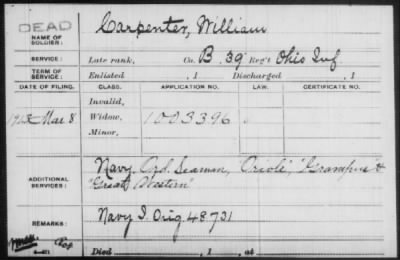 DEAD
NAME OF SOLDIER:
Carpenter, William
SERVICE:
Late rank, Co. B, 39 Reg't Ohio Inf.
TERM OF SERVICE:
Enlisted , 1 Discharged , 1
DATE OF FILING. CLASS. APPLICATION NO. LAW. CERTIFICATE NO.
Invalid,
Mar 8 Widow, 1003396
Minor,
ADDITIONAL SERVICES:
Navy. Ord. Seaman, "Oriole," "Grampus" &
"Great Western"
REMARKS:
Navy S. Orig 48731
Died , 1 , at